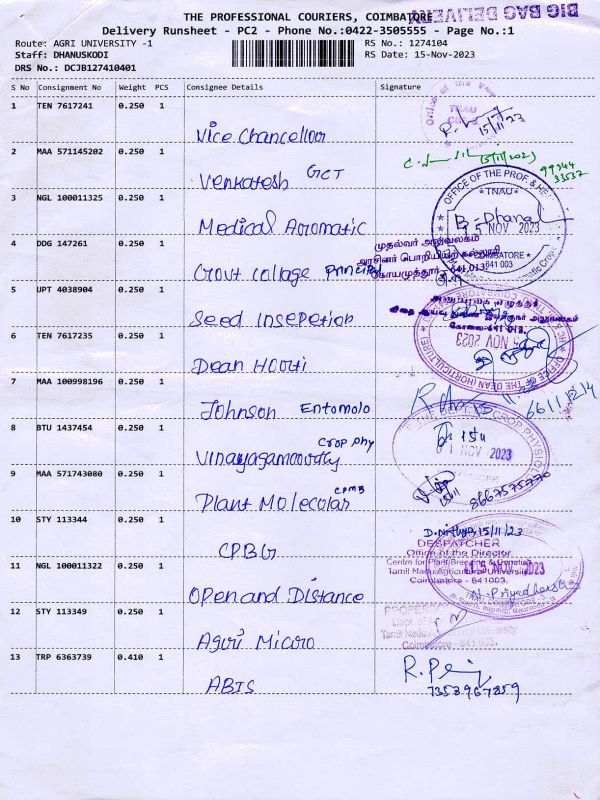 THE PROFESSIONAL COURIERS, COIMBATORE
BIG BAG DELIVERY
Delivery Runsheet - PC2 - Phone No.:0422-3505555 - Page No.:1
Route: AGRI UNIVERSITY -1
RS No.: 1274104
Staff: DHANUSKODI
RS Date: 15-Nov-2023
DRS No.: DCJB127410401
S No Consignment No Weight PCS Consignee Details Signature
1 TEN 7617241 0.250 1
Vice Chancellor
TNAU
15/11/23
2 MAA 571145202 0.250 1
Venkatesh GCT
(15/11/2023)
99344
33537
3 NGL 100011325 0.250 1
Medical Aromatic
OFFICE OF THE PROF. & HE
TNAU
B. Dhanal
15 NOV 2023
COIMBATORE
641 003
4 DDG 147261 0.250 1
Govt collage principal
முதல்வர் அலுவலகம்
அரசினர் பொறியியற் கல்லூரி
கோயமுத்தூர் - 641 013.
5 UPT 4038904 0.250 1
Seed Insepetior
கோவை-641 013.
6 TEN 7617235 0.250 1
Dean Horti
NOV 2023
OFFICE OF THE DEAN (HORTICULTURE)
7 MAA 100998196 0.250 1
Johnson Entomolo
8 BTU 1437454 0.250 1
Vinayagamoorthy crop phy
CROP PHYSIOL
NOV 2023
9 MAA 571743080 0.250 1
Plant Molecolar CPMB
15/11
8667575770
10 STY 113344 0.250 1
CPBG
D. Nithya 15/11/23
DESPATCHER
Office of the Director
Centre for Plant Breeding & Genetics
Tamil Nadu Agricultural University
Coimbatore - 641003.
11 NGL 100011322 0.250 1
Open and Distance
NOV 2023
Priyadharsh
12 STY 113349 0.250 1
Agri Micro
Tamil Nadu University
Coimbatore - 641 003.
13 TRP 6363739 0.410 1
ABIS
7353967259